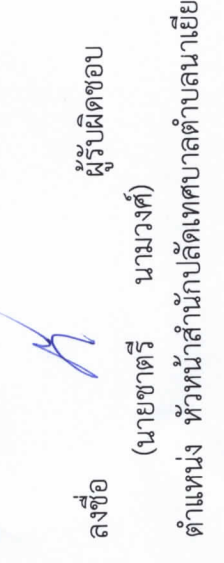 ลงชื่อ ผู้รับผิดชอบ
(นายชาตรี นามวงศ์)
ตำแหน่ง หัวหน้าสำนักปลัดเทศบาลตำบลนาเยีย